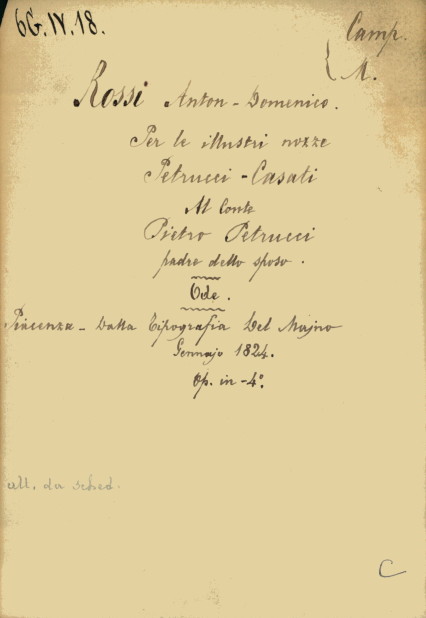 6G.IV.18.
Camp.
M.
Rossi Anton-Domenico.
Per le illustri nozze
Petrucci-Casati
Al Conte
Pietro Petrucci
padre dello sposo.
Ode.
Piacenza - Dalla Tipografia Del Majno
Gennajo 1824.
Op. in-4°.
all. da sched.
C